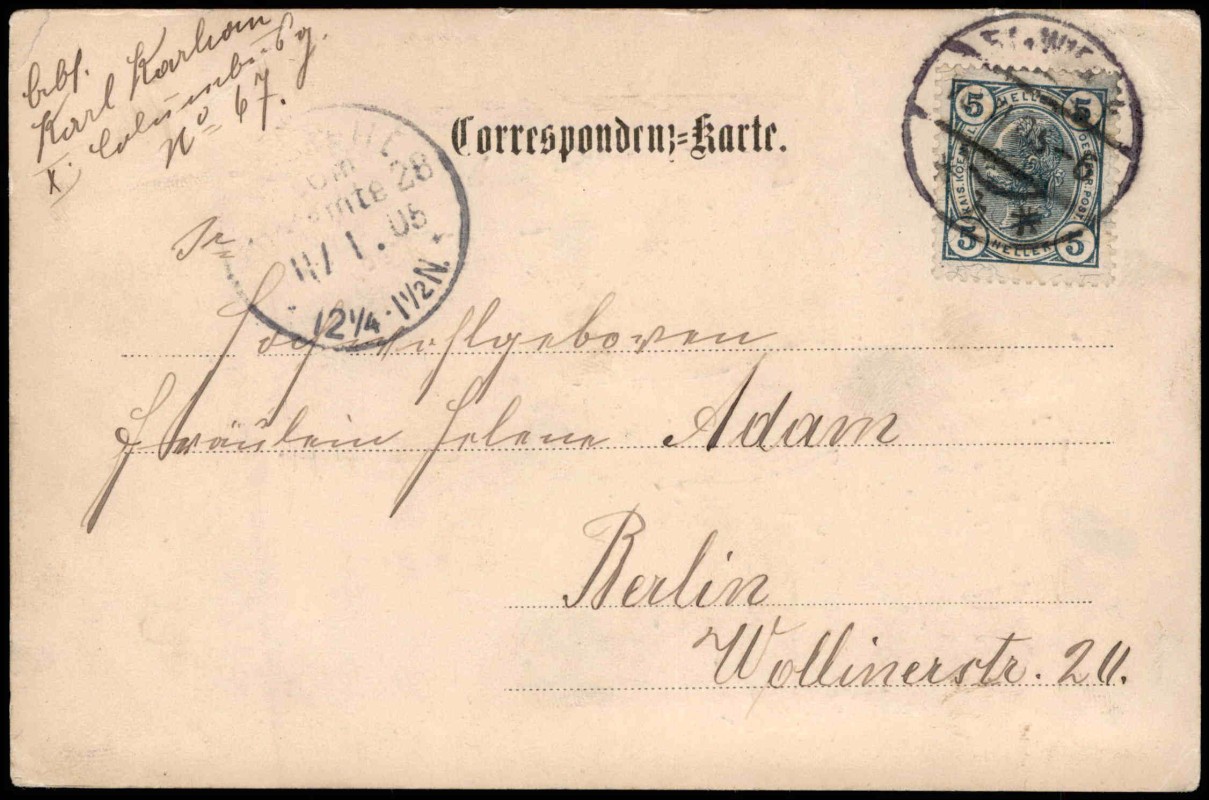 Abs.
Karl Karhan
X. Columbusg.
No 67.
Correspondenz=Karte.
5 HELLER 5
KAIS. KOENIGL. OESTERR. POST
5 HELLER 5
28
11/1.05
12¼-1½N.
Sr.
Hochwohlgeboren
Fräulein Helene Adam
Berlin
Wollinerstr. 20.